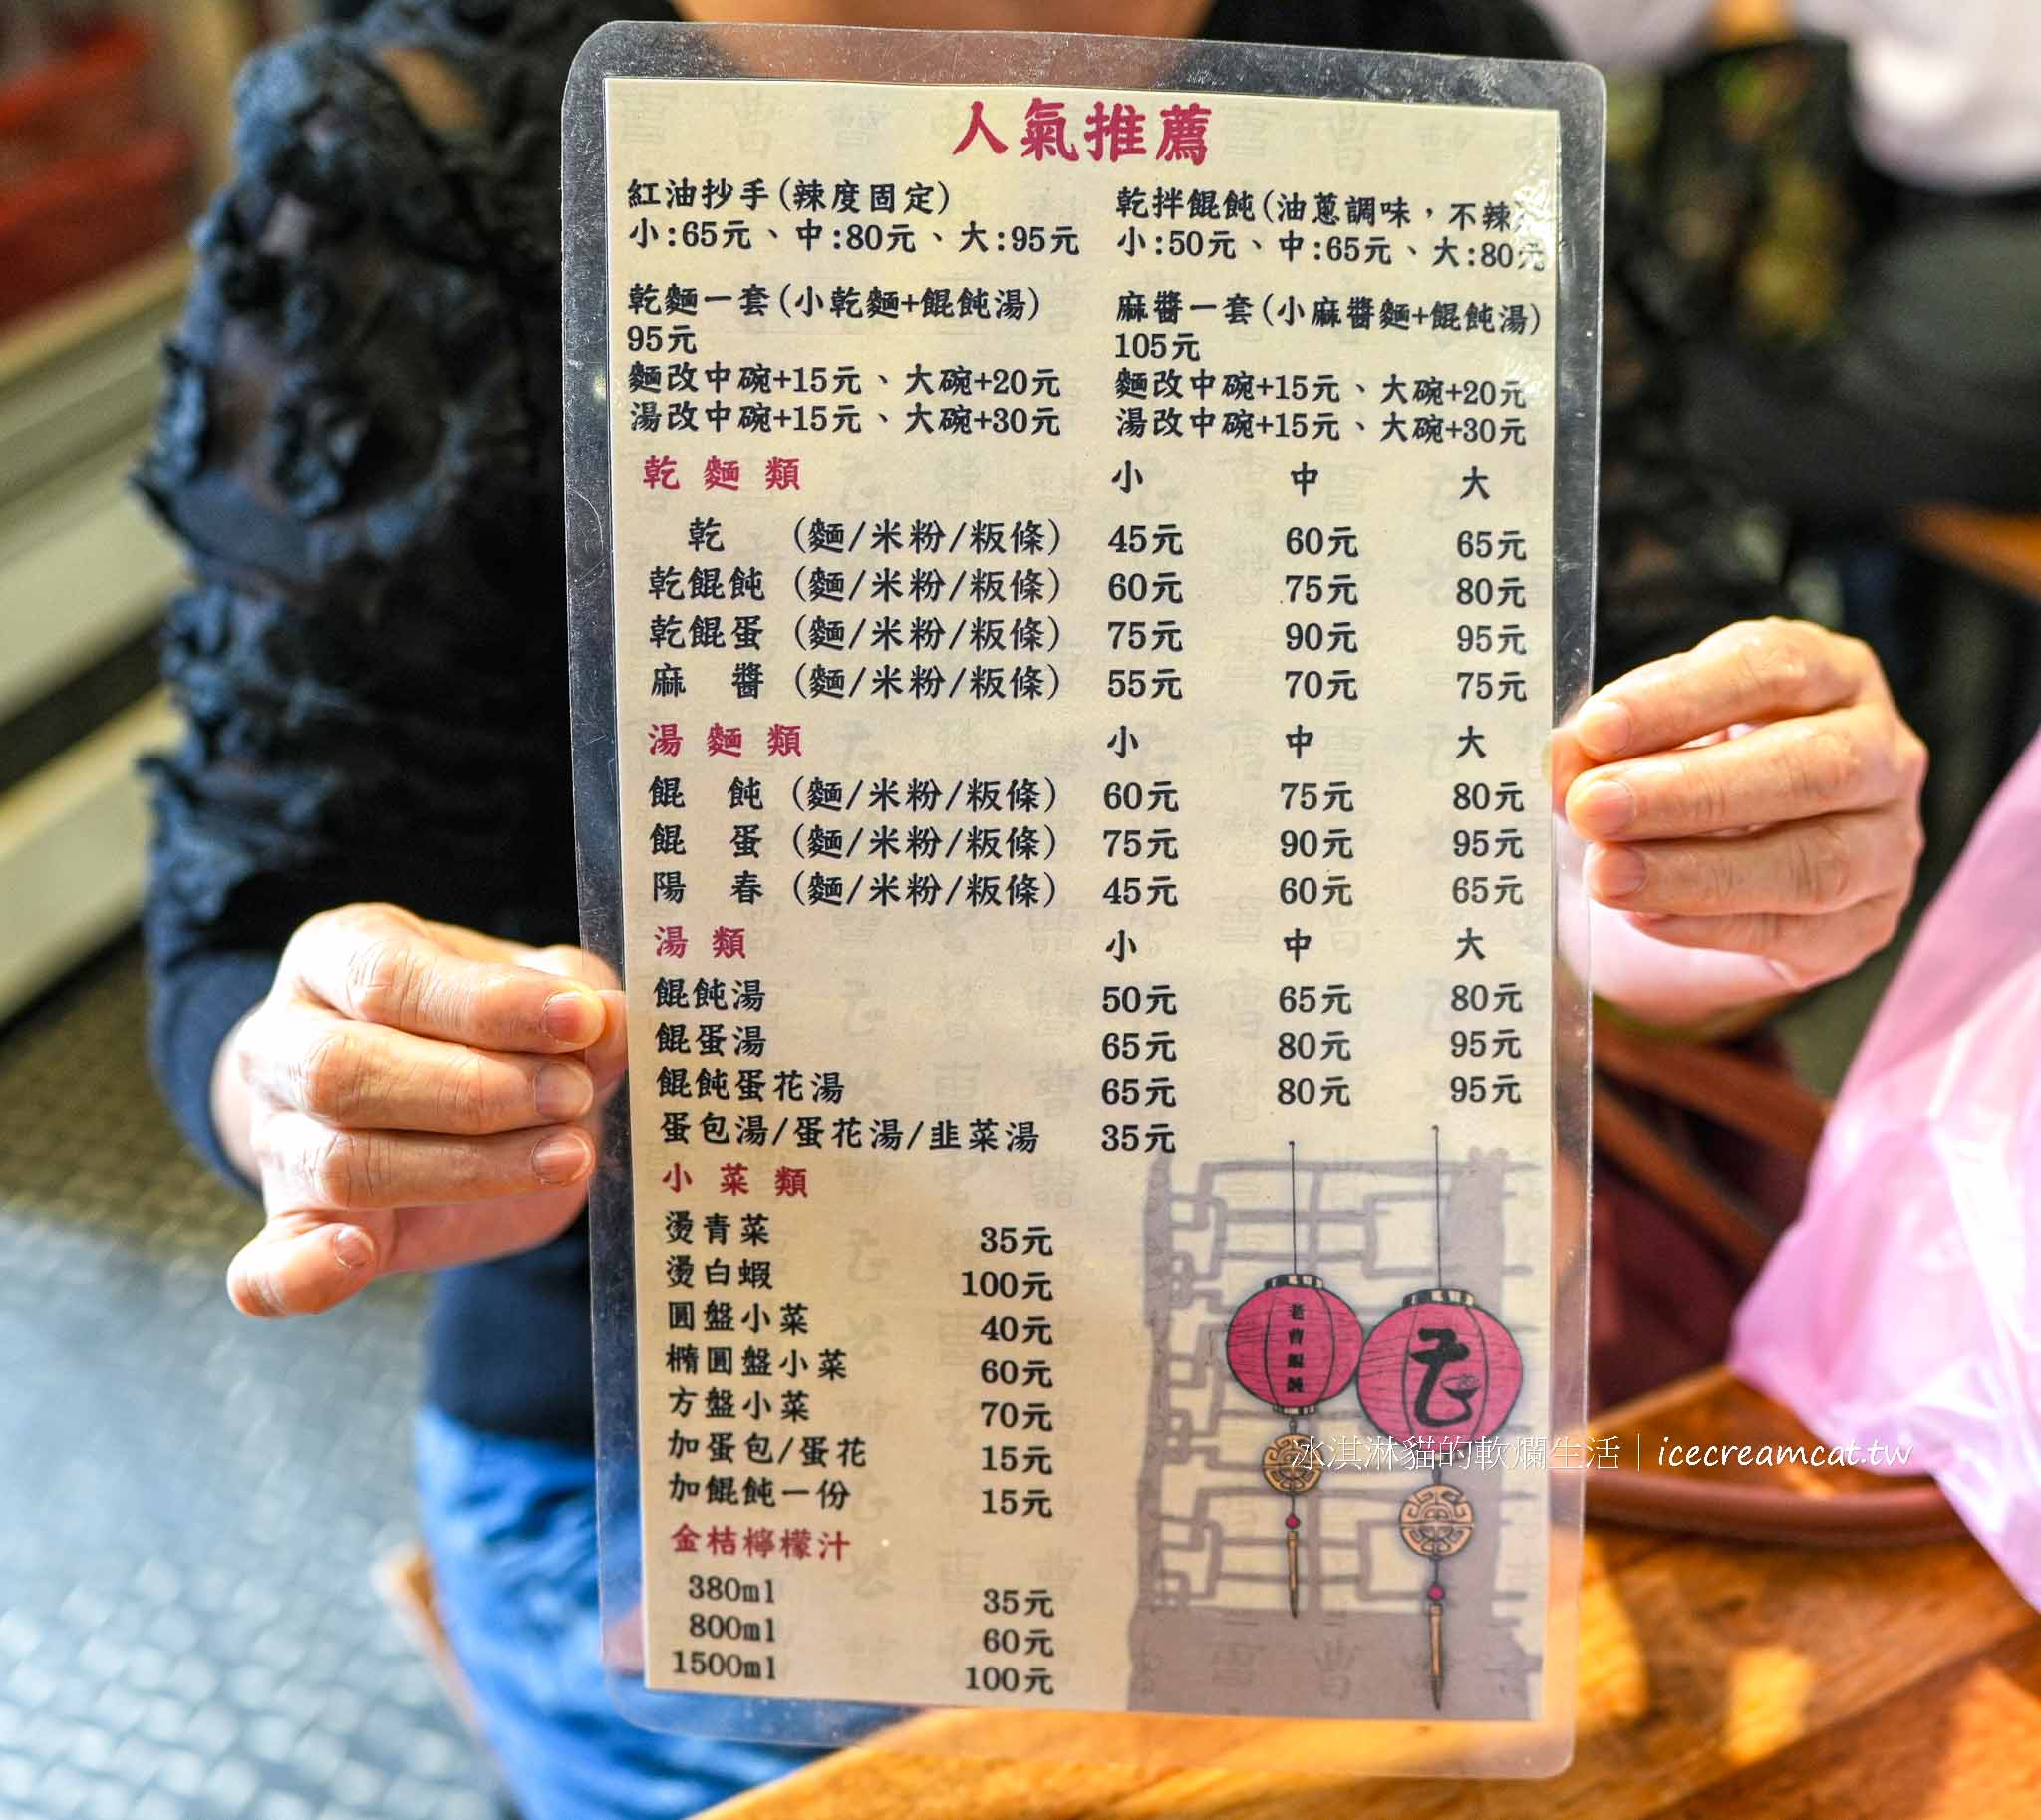 人氣推薦
紅油抄手(辣度固定)
小:65元、中:80元、大:95元
乾拌餛飩(油蔥調味，不辣)
小:50元、中:65元、大:80元
乾麵一套(小乾麵+餛飩湯)
95元
麵改中碗+15元、大碗+20元
湯改中碗+15元、大碗+30元
麻醬一套(小麻醬麵+餛飩湯)
105元
麵改中碗+15元、大碗+20元
湯改中碗+15元、大碗+30元
乾麵類 小 中 大
乾 (麵/米粉/粄條) 45元 60元 65元
乾餛飩 (麵/米粉/粄條) 60元 75元 80元
乾餛蛋 (麵/米粉/粄條) 75元 90元 95元
麻醬 (麵/米粉/粄條) 55元 70元 75元
湯麵類 小 中 大
餛飩 (麵/米粉/粄條) 60元 75元 80元
餛蛋 (麵/米粉/粄條) 75元 90元 95元
陽春 (麵/米粉/粄條) 45元 60元 65元
湯類 小 中 大
餛飩湯 50元 65元 80元
餛蛋湯 65元 80元 95元
餛飩蛋花湯 65元 80元 95元
蛋包湯/蛋花湯/韭菜湯 35元
小菜類
燙青菜 35元
燙白蝦 100元
圓盤小菜 40元
橢圓盤小菜 60元
方盤小菜 70元
加蛋包/蛋花 15元
加餛飩一份 15元
金桔檸檬汁
380ml 35元
800ml 60元
1500ml 100元
老曹餛飩
冰淇淋貓的軟爛生活｜icecreamcat.tw